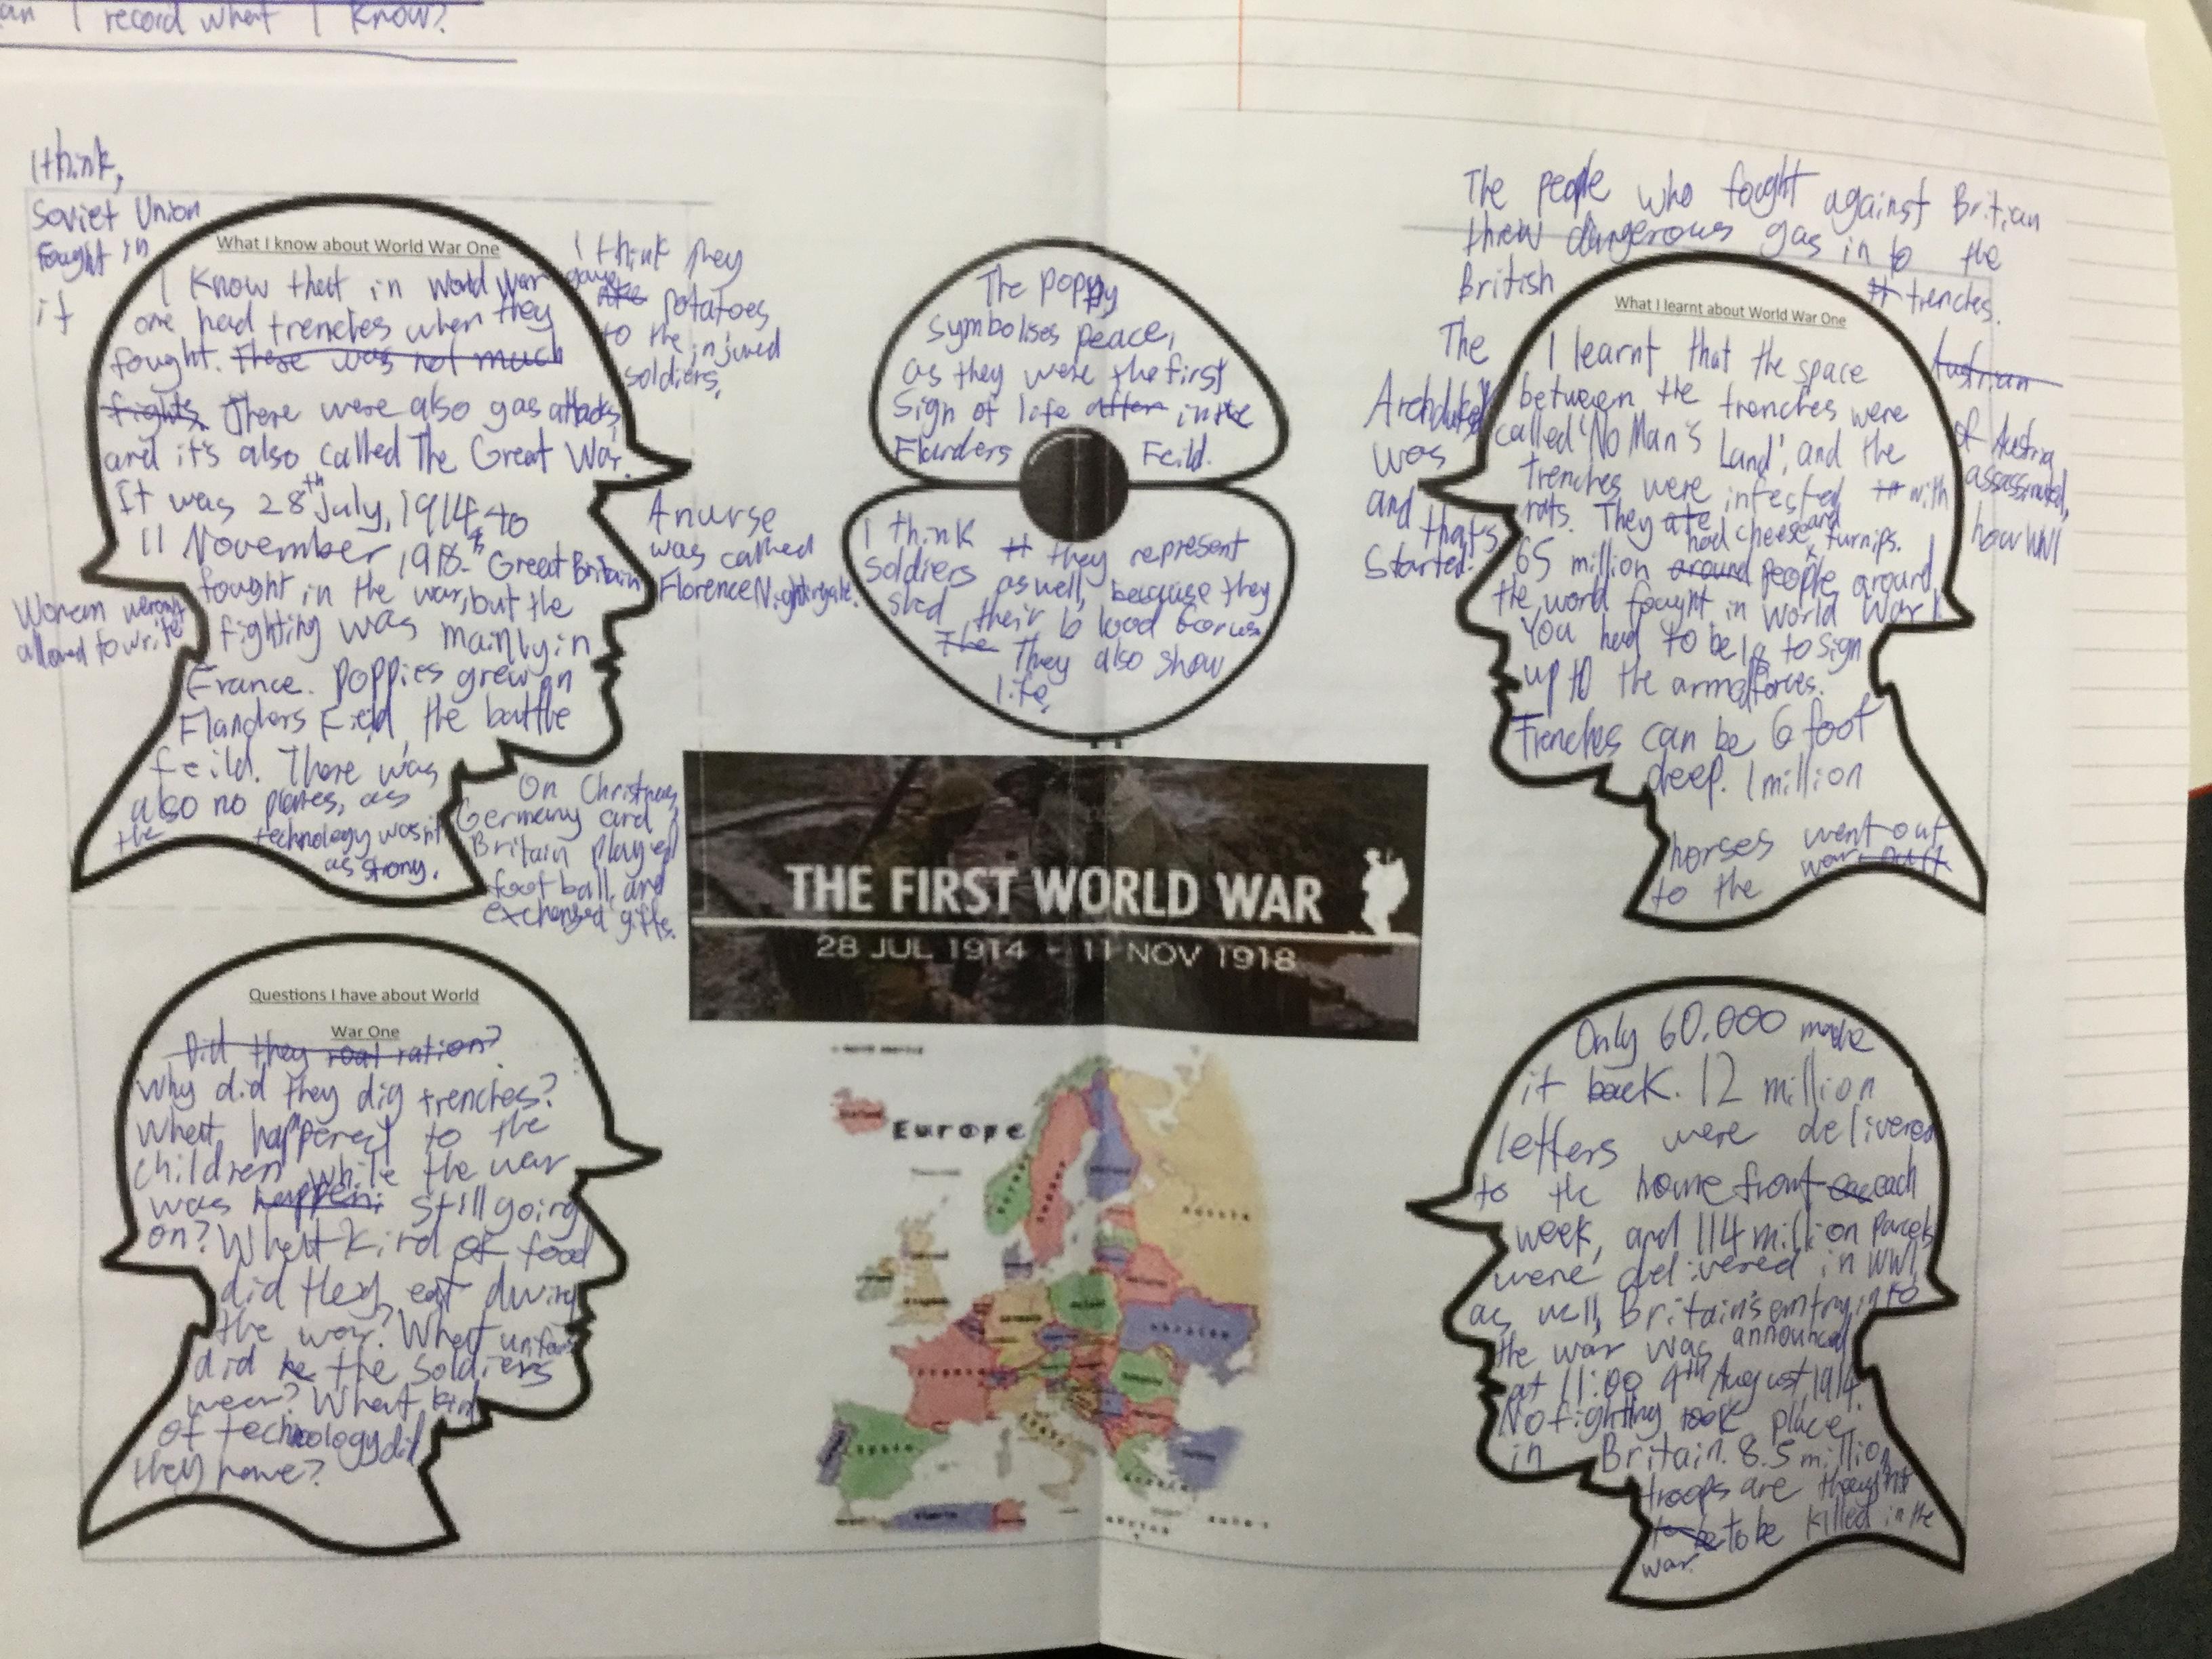 an I record what I know?
I think,
Soviet Union
fought in
it
What I know about World War One
I know that in world war
one had trenches when they
fought. There was not much
fights. There were also gas attacks,
and it's also called The Great War.
It was 28th July, 1914, to
11 November 1918. Great Britain
fought in the war, but the
fighting was mainly in
France. Poppies grew on
Flanders Field, the battle
feild. There was
also no planes, as
the technology wasn't
as strong.
I think they
gave potatoes
to the injured
soldiers.
A nurse
was called
Florence Nightingale.
Women weren't
allowed to write
On Christmas,
Germany and
Britain played
football, and
exchanged gifts.
The poppy
symbolises peace,
as they were the first
sign of life after in the
Flanders Feild.
I think they represent
soldiers as well, because they
shed their blood for us.
The They also show
life.
THE FIRST WORLD WAR
28 JUL 1914 - 11 NOV 1918
Europe
The people who fought against Britian
threw dangerous gas in to the
British trenches.
What I learnt about World War One
I learnt that the space
between the trenches were
called 'No Man's Land', and the
trenches were infected with
rats. They ate had cheese and turnips.
65 million around people around
the world fought in World War 1
You had to be 19 to sign
up to the armed forces.
Trenches can be 6 foot
deep. 1 million
horses went out
to the war out
The Archduke Austrian of Austria
was assassinated,
and that's how WW1
started!
Questions I have about World
War One
Did they ration?
Why did they dig trenches?
What happened to the
children while the war
was happen: still going
on? What kind of food
did they eat during
the war? What uniform
did the soldiers
wear? What kind
of technology did
they have?
Only 60,000 made
it back. 12 million
letters were delivered
to the home front each
week, and 114 million parcels
were delivered in WW1,
as well, Britain's entry into
the war was announced
at 11:00 4th August, 1914.
No fighting took place
in Britain. 8.5 million
troops are thought
to be to be killed in the
war.